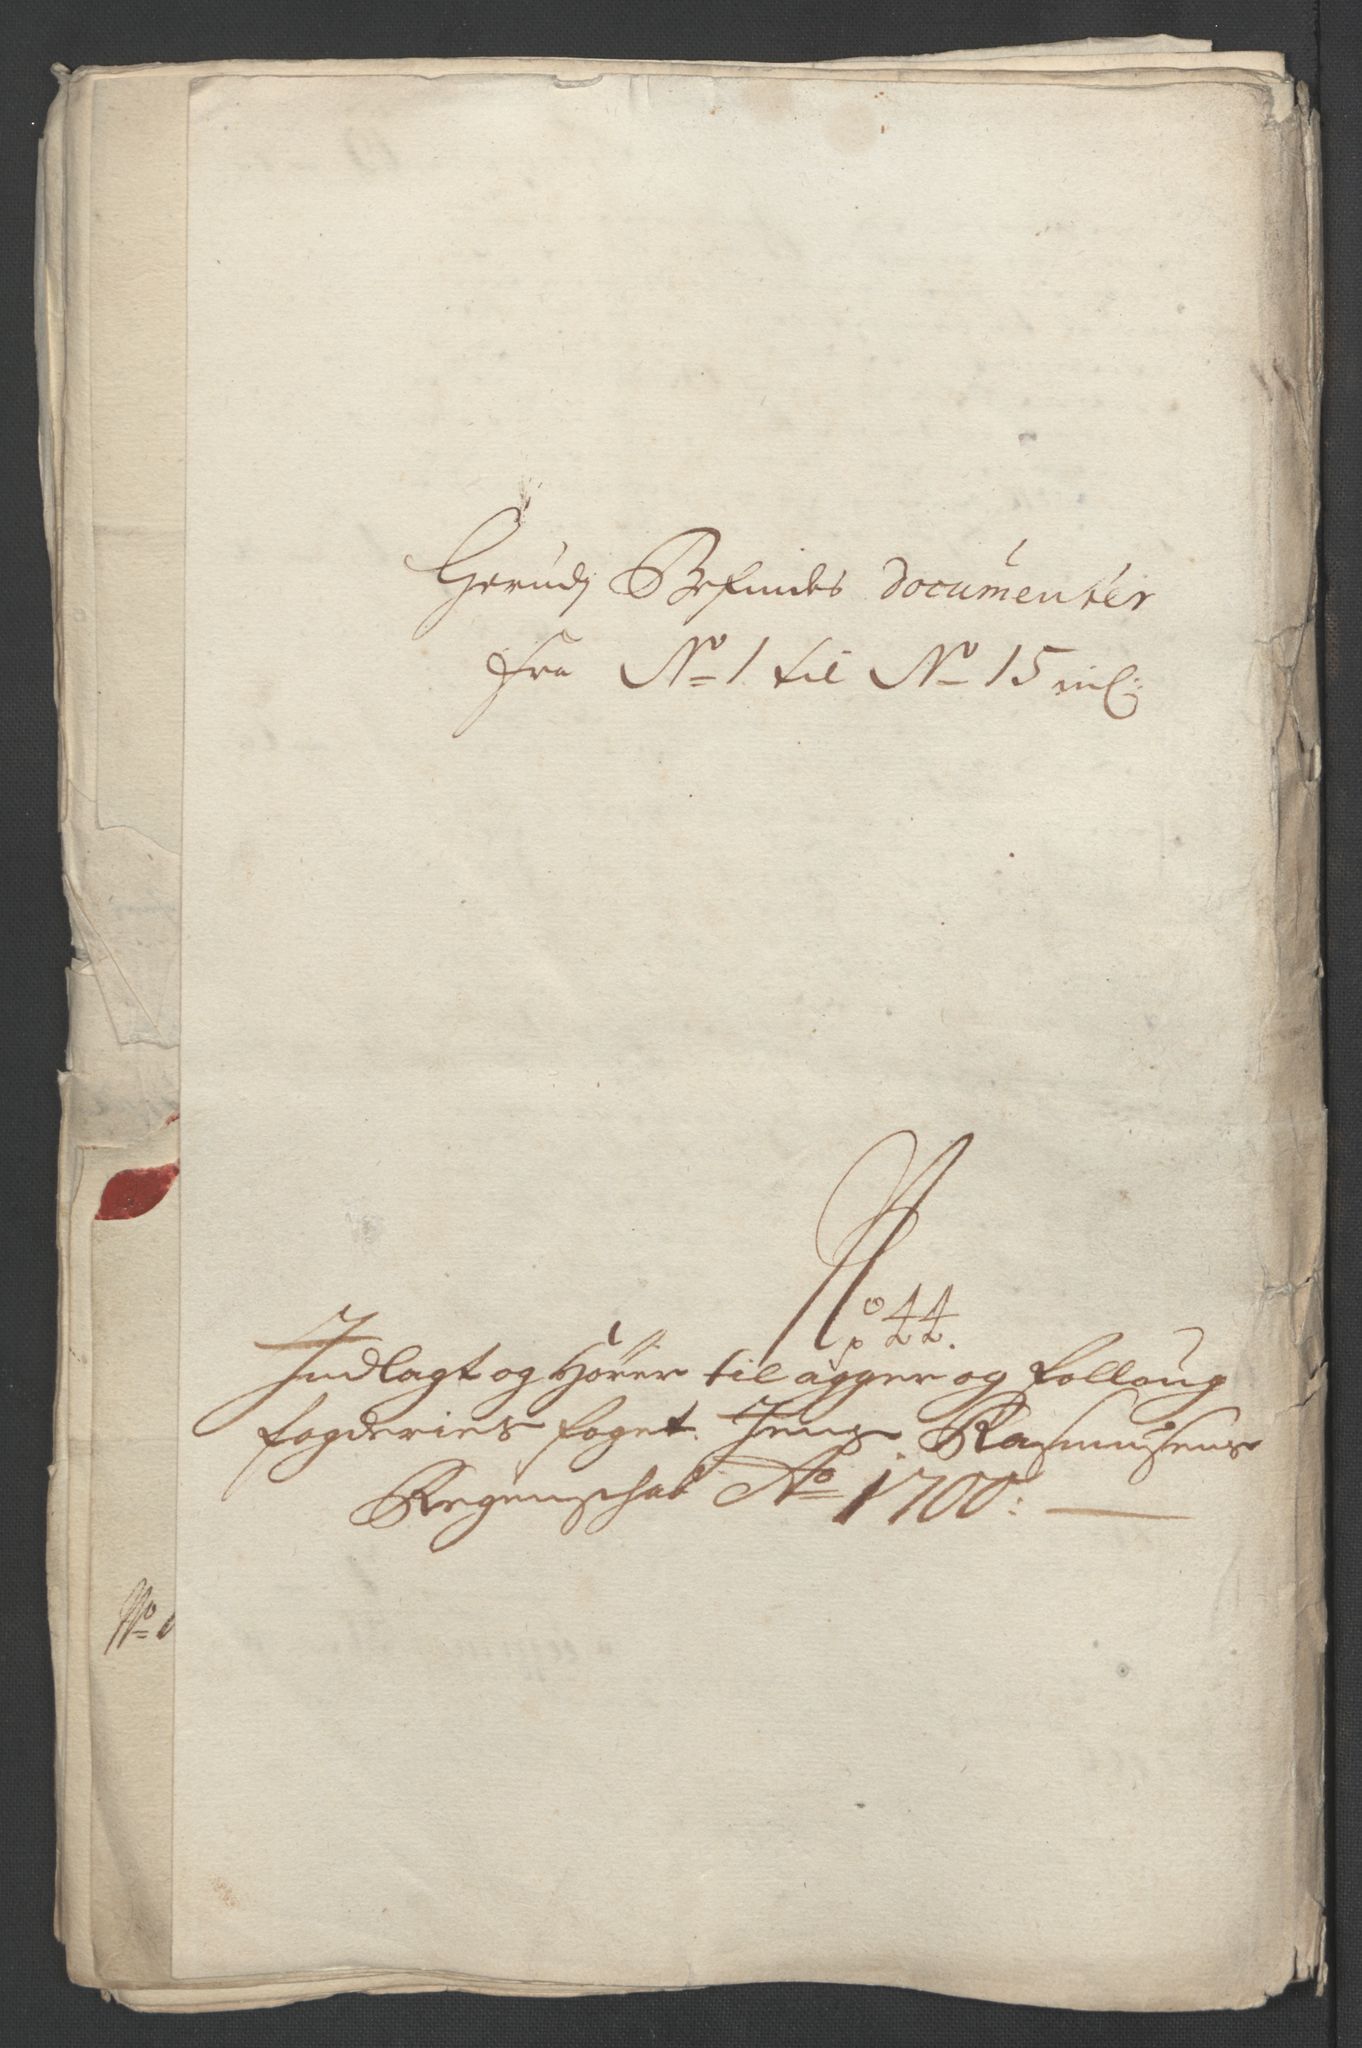 Herudj Befindes Documenter
fra No 1 til No 15 incl:
No 44.
Indlagt og Hörer til agger og folloug
fogderies foget. Jens Rasmusens
Regenschab Ao 1700:
No